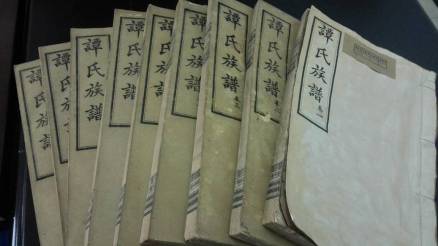 譚氏族譜
譚氏族
譚氏族譜
譚氏族譜
譚氏族譜
譚氏族譜
譚氏族譜 卷
譚氏族譜 卷
譚氏族譜 卷一